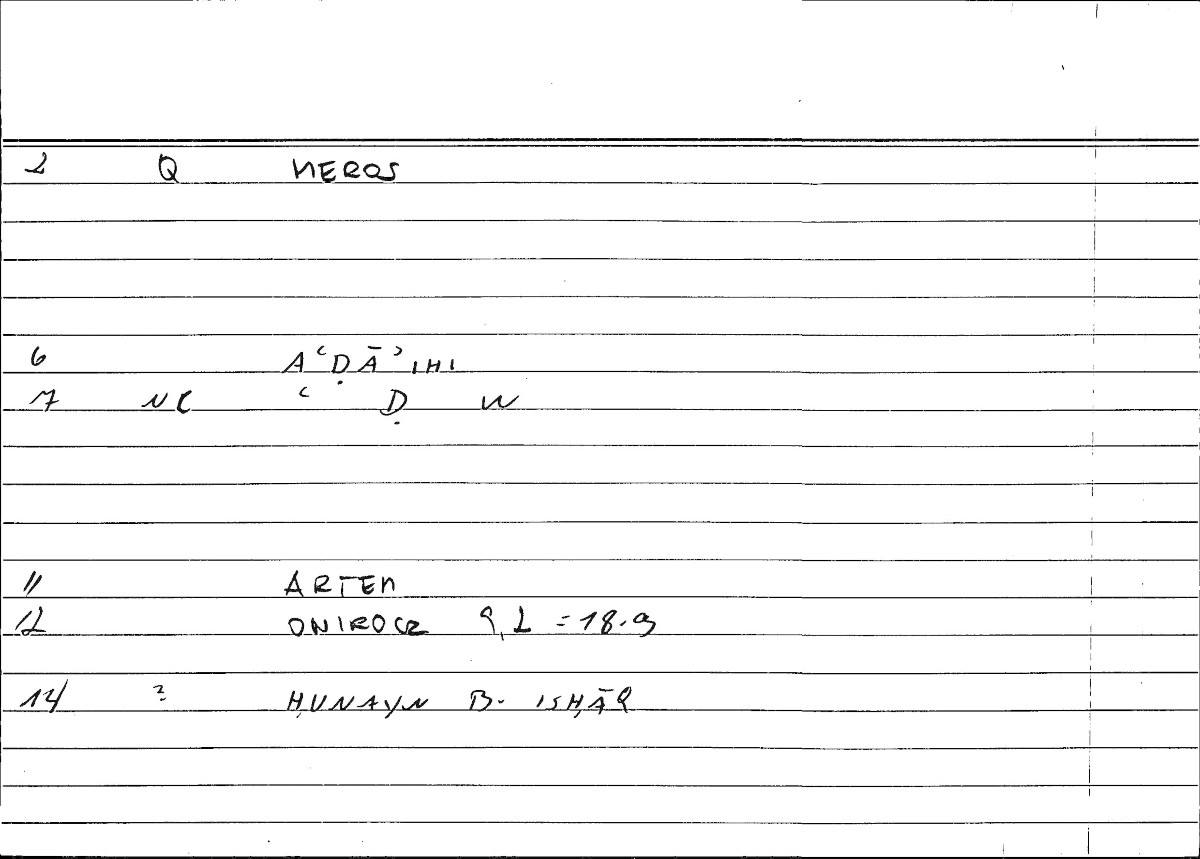 2 Q MEROS
6 AʿḌĀʾIHI
7 NC ʿ Ḍ W
11 ARTEM
12 ONIROCR = 18.9
14 ? ḤUNAYN B. ISḤĀQ